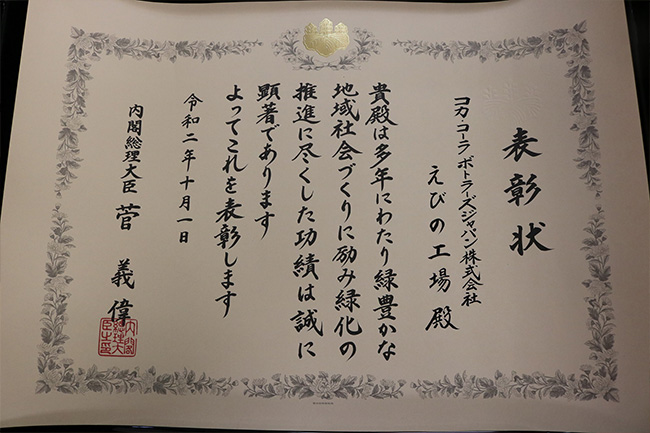 表彰状
コカ・コーラ ボトラーズジャパン株式会社
えびの工場殿
貴殿は多年にわたり緑豊かな
地域社会づくりに励み緑化の
推進に尽くした功績は誠に
顕著であります
よってこれを表彰します
令和二年十月一日
内閣総理大臣 菅 義偉
内閣
総理大
臣之印